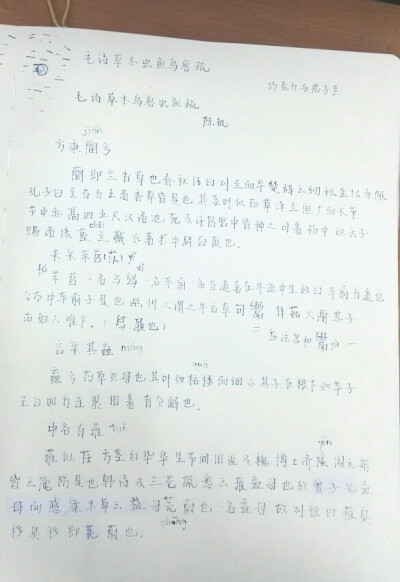 毛诗草木虫鱼鸟兽疏
毛诗草木鸟兽虫鱼疏
陈机
jiān
方秉蕑兮
蕑即兰香草也春秋传曰刈兰而卒楚辞云纫秋兰以为佩
孔子曰兰当为王者香草皆是也其茎叶似药草泽兰但广而长节
节中赤高四五尺汉诸池苑及许昌宫中皆种之可着粉中故天子
赐诸侯茝兰藏衣著书中辟白鱼也
采采芣苢(苡) yǐ
fú
芣苢一名马舄一名车前一名当道喜在牛迹中生故曰车前当道也
今药中车前子是也幽州人谓之牛舌草可鬻作茹大滑其子
治妇人难产
言采其蝱 méng
蝱今药草贝母也其叶如栝楼而细小其子在根下如芋子
正白四方连累相着有分解也
中谷有蓷 tuī
yīn
蓷似荏方茎白华华生节间旧说及魏博士济阴周元明
皆云菴䕡是也韩诗及三苍说悉云蓷益母也故曾子见益
母而感案本草云益母茺蔚也一名益母故刘歆曰蓷臭
chōng
秽臭秽即茺蔚也